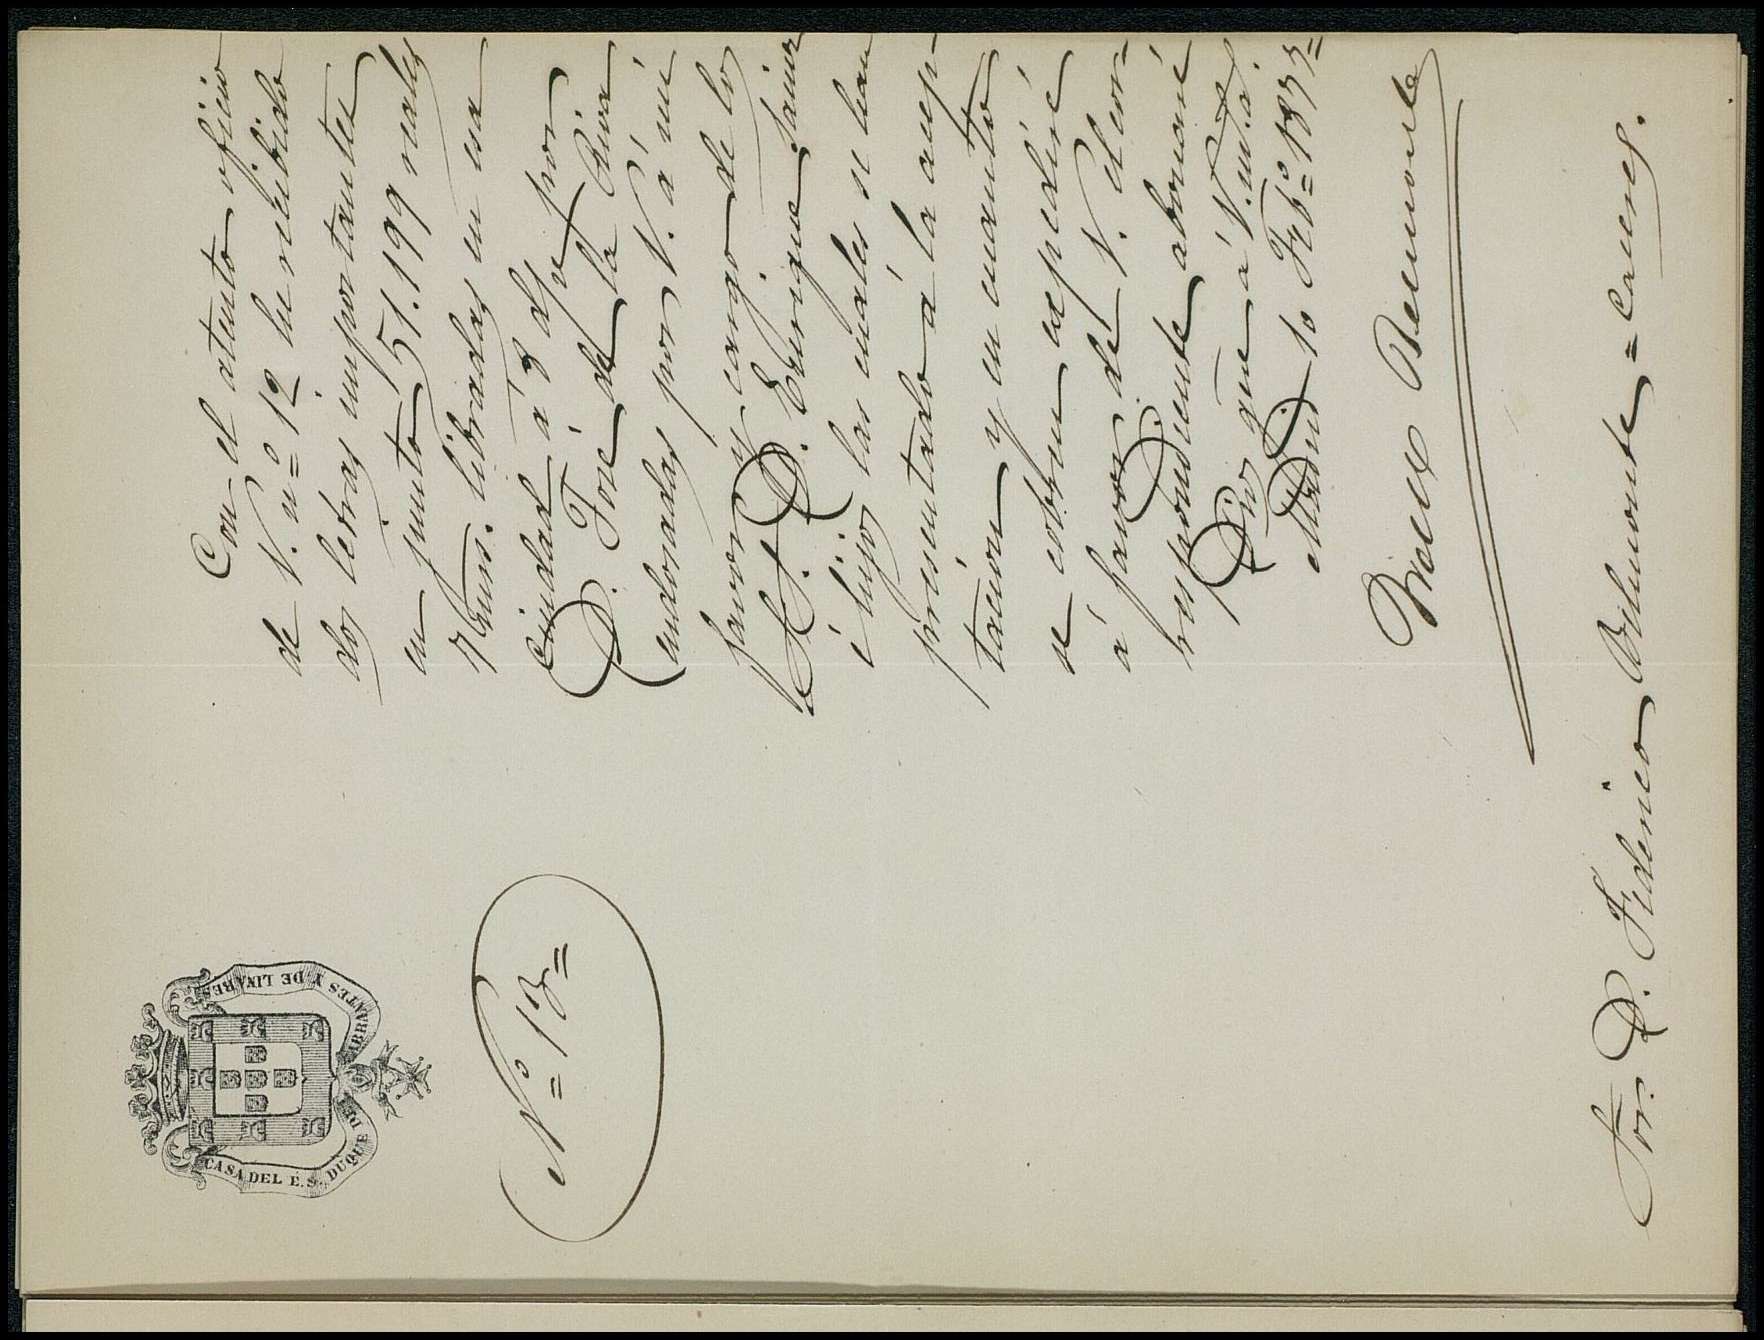 CASA DEL E. S. DUQUE DE ABRANTES Y DE LINARES
Nº 13
Con el atento oficio
de V. nº 12 he recibido
dos letras importantes
en junto 51.199 reales
7 cents. libradas en esa
Ciudad á 8 d/v por
D. José de la Riva
endosadas por V. á mi
favor y cargo de los
S.S. D. Enrique Sainz
é hijos las cuales se han
presentado á la acep-
tacion y en cuanto
se cobren expediré
á favor de V. el cor-
respondiente abonaré
Dios gue á V. m.s a.s
Madrid 10 Febº 1877
Belmonte
Sor. D. Federico Belmonte = Caceres.